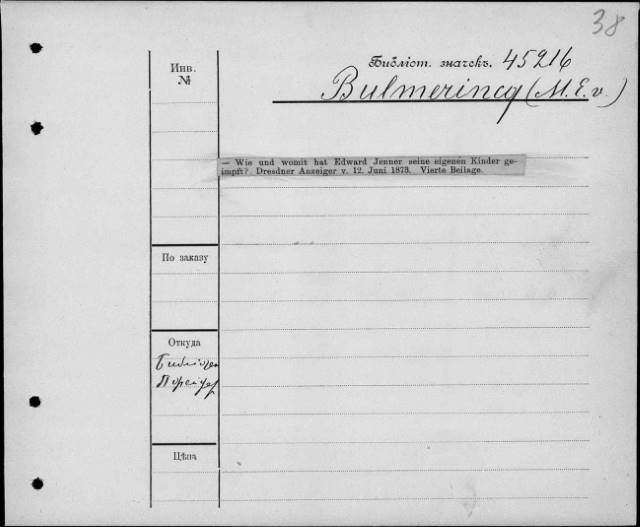 38
Инв.
№
Библіот. значекъ. 45216
Bulmerincq (M. E. v.)
— Wie und womit hat Edward Jenner seine eigenen Kinder ge-
impft? Dresdner Anzeiger v. 12. Juni 1873. Vierte Beilage.
По заказу
Откуда
Цѣна